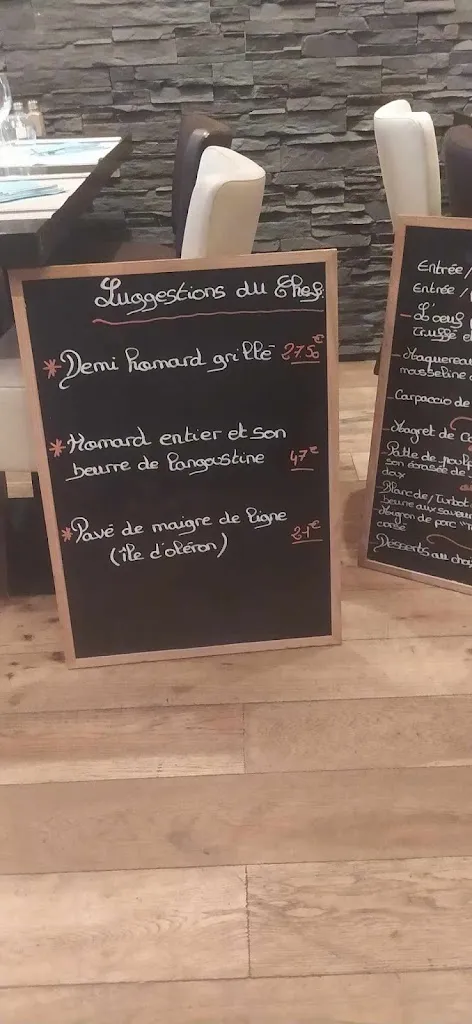 Suggestions du Chef:
* Demi homard grillé 27.50€
* Homard entier et son
beurre de langoustine 47€
* Pavé de maigre de ligne
(île d'oléron) 27€
Entrée /
Entrée /
- L'oeuf
truffé et
- Maquereau
mousseline
- Carpaccio de
- Magret de
son écrasée de
doux
- Blanc de Turbot
beurre aux saveurs
- Mignon de porc
corsé
Désserts au choix